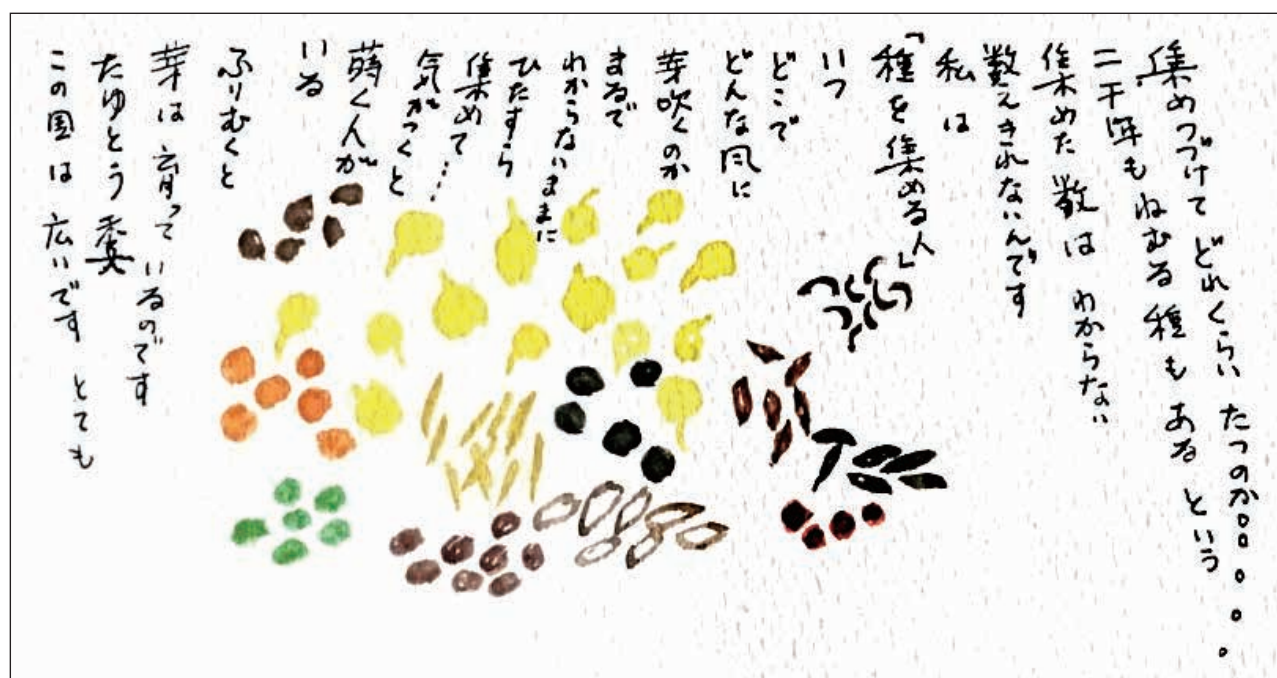 集めつづけて どれくらい たつのか。。。。。。
二千年も ねむる 種も ある という
集めた 数は わからない
数えきれないんです
私は
「種を集める人」
いつ
どこで
どんな風に
芽吹くのか
まるで
わからないままに
ひたすら
集めて…
気がつくと
蒔く人が
いる
ふりむくと
芽は 育って いるのです
たゆとう 委
この国は 広いです とても